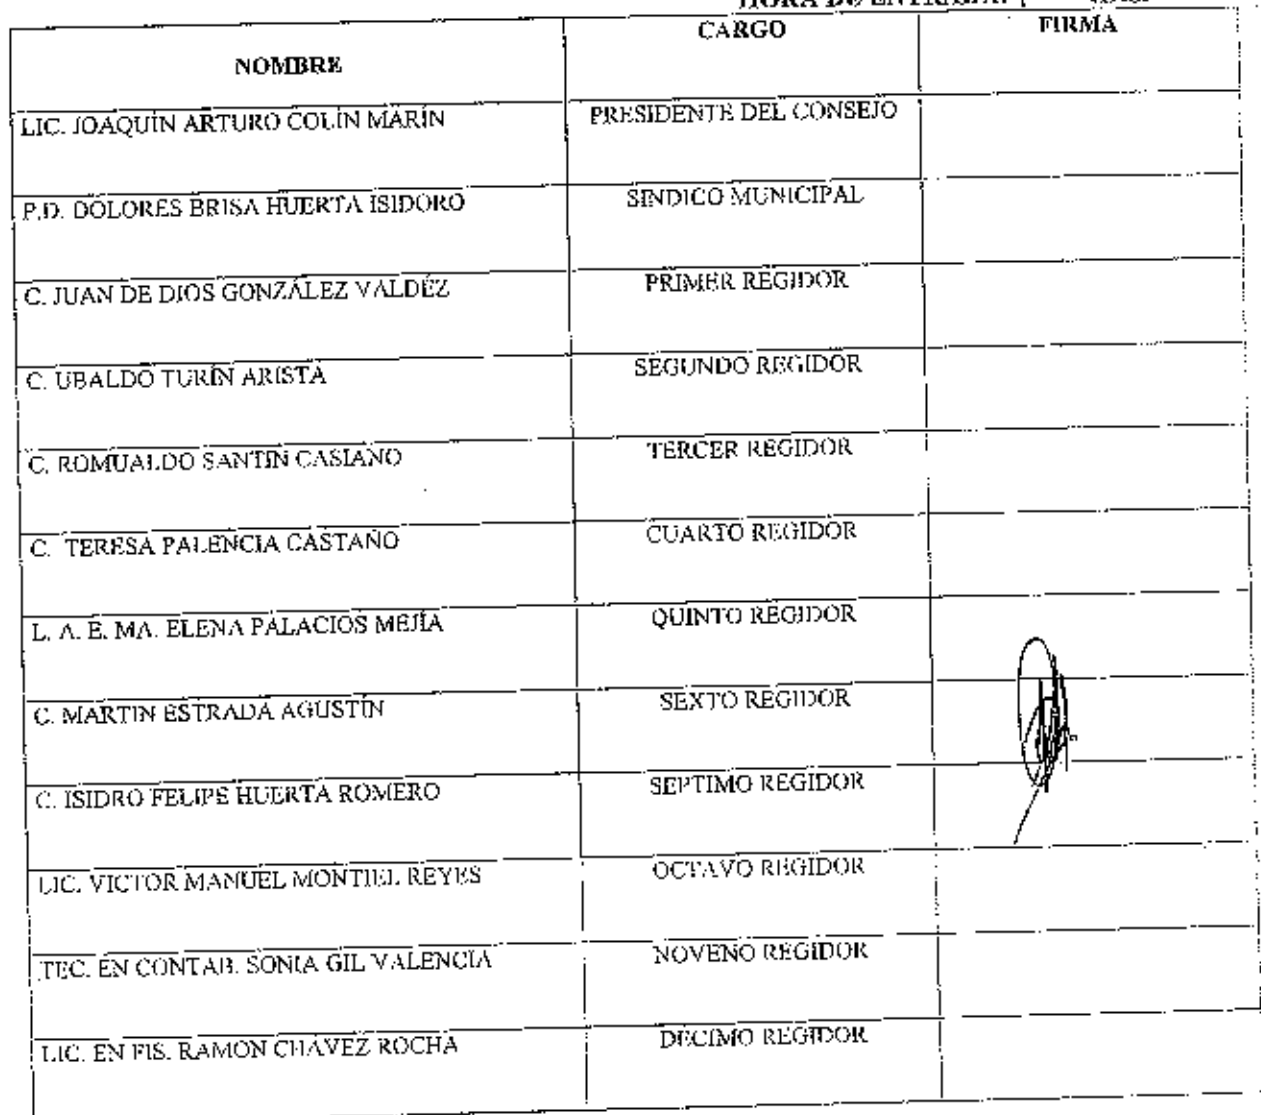 HORA DE ENTRADA:
NOMBRE CARGO FIRMA
LIC. JOAQUÍN ARTURO COLÍN MARÍN PRESIDENTE DEL CONSEJO
P.D. DOLORES BRISA HUERTA ISIDORO SINDICO MUNICIPAL
C. JUAN DE DIOS GONZÁLEZ VALDÉZ PRIMER REGIDOR
C. UBALDO TURÍN ARISTA SEGUNDO REGIDOR
C. ROMUALDO SANTIN CASIANO TERCER REGIDOR
C. TERESA PALENCIA CASTAÑO CUARTO REGIDOR
L. A. E. MA. ELENA PALACIOS MEJÍA QUINTO REGIDOR
C. MARTIN ESTRADA AGUSTÍN SEXTO REGIDOR
C. ISIDRO FELIPE HUERTA ROMERO SEPTIMO REGIDOR
LIC. VICTOR MANUEL MONTIEL REYES OCTAVO REGIDOR
TEC. EN CONTAB. SONIA GIL VALENCIA NOVENO REGIDOR
LIC. EN FIS. RAMON CHÁVEZ ROCHA DECIMO REGIDOR